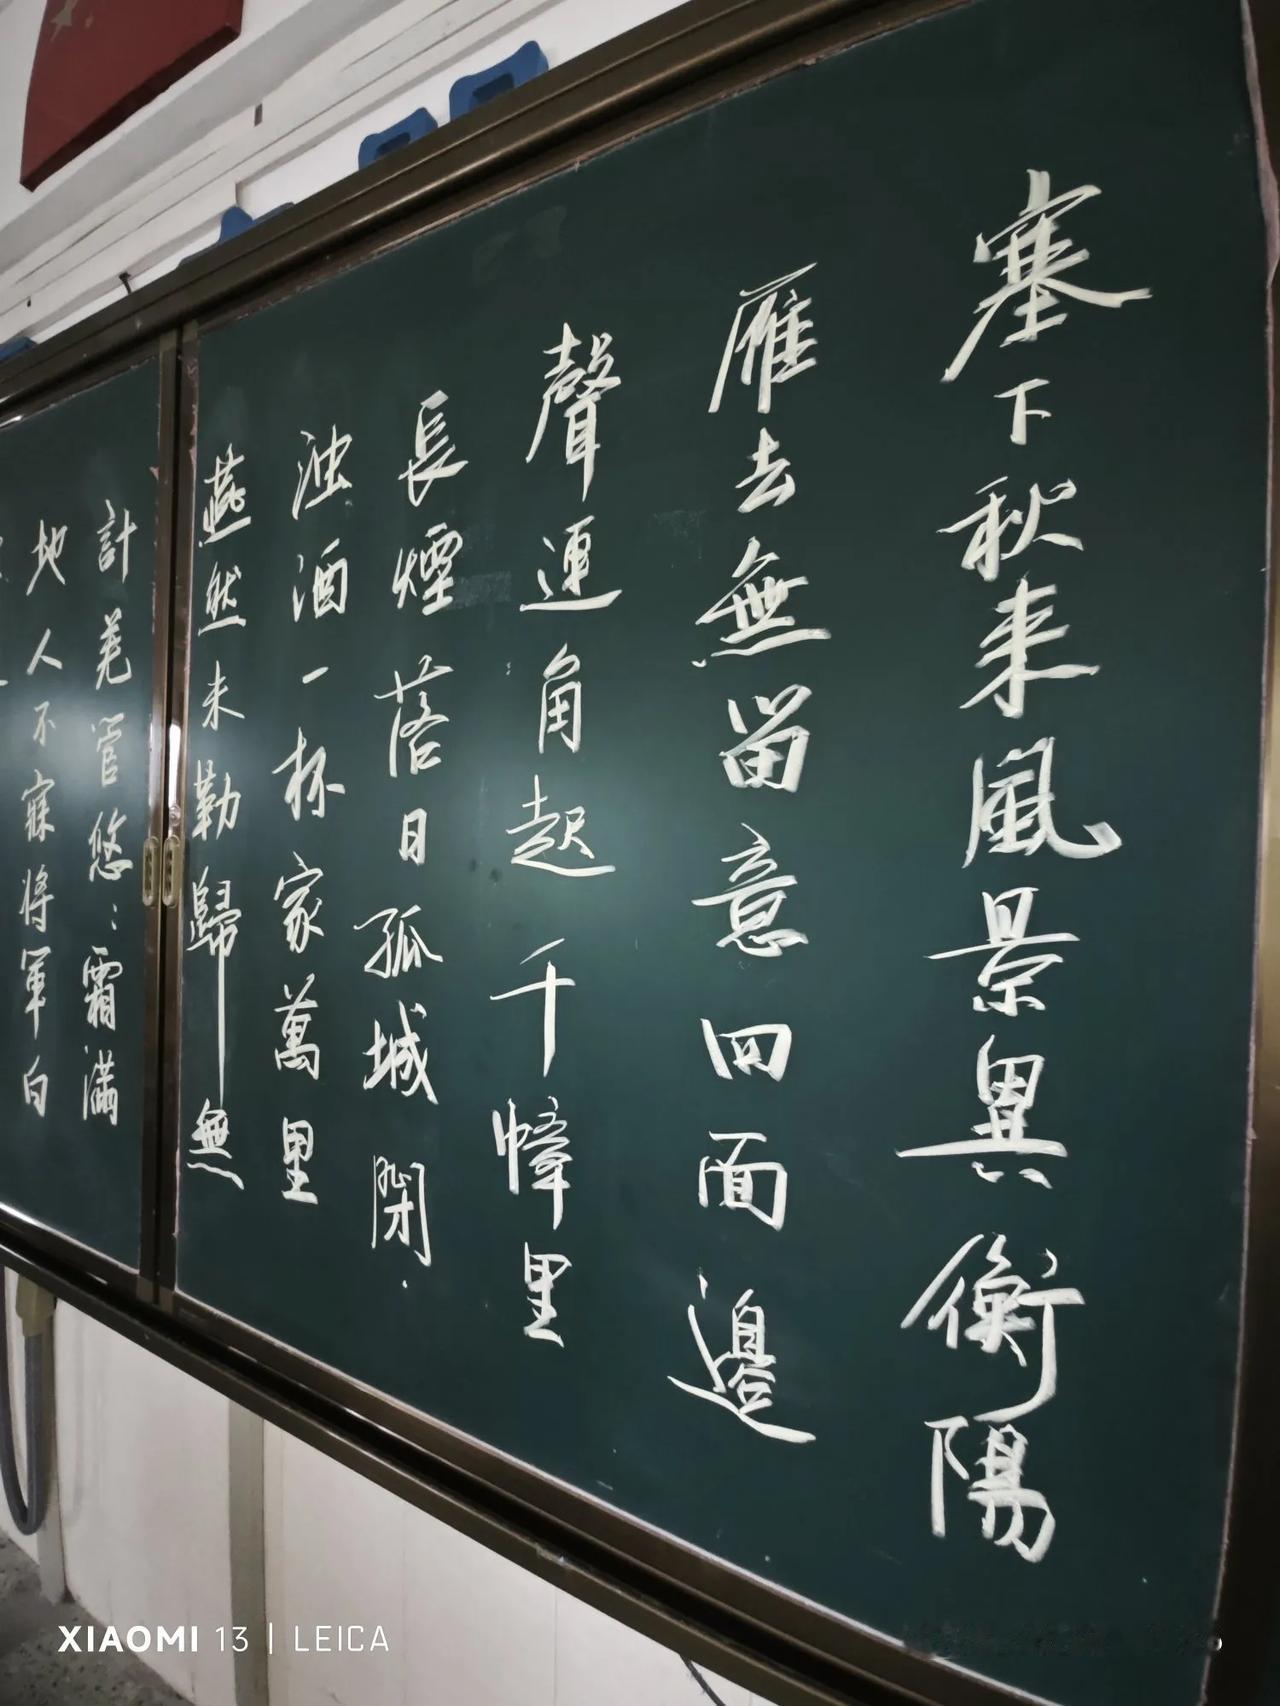 塞下秋来風景異衡陽
雁去無留意四面邊
聲連角起千幛里
長煙落日孤城閉
浊酒一杯家萬里
燕然未勒歸無
計羌管悠:霜满
地人不寐将軍白
XIAOMI 13 | LEICA